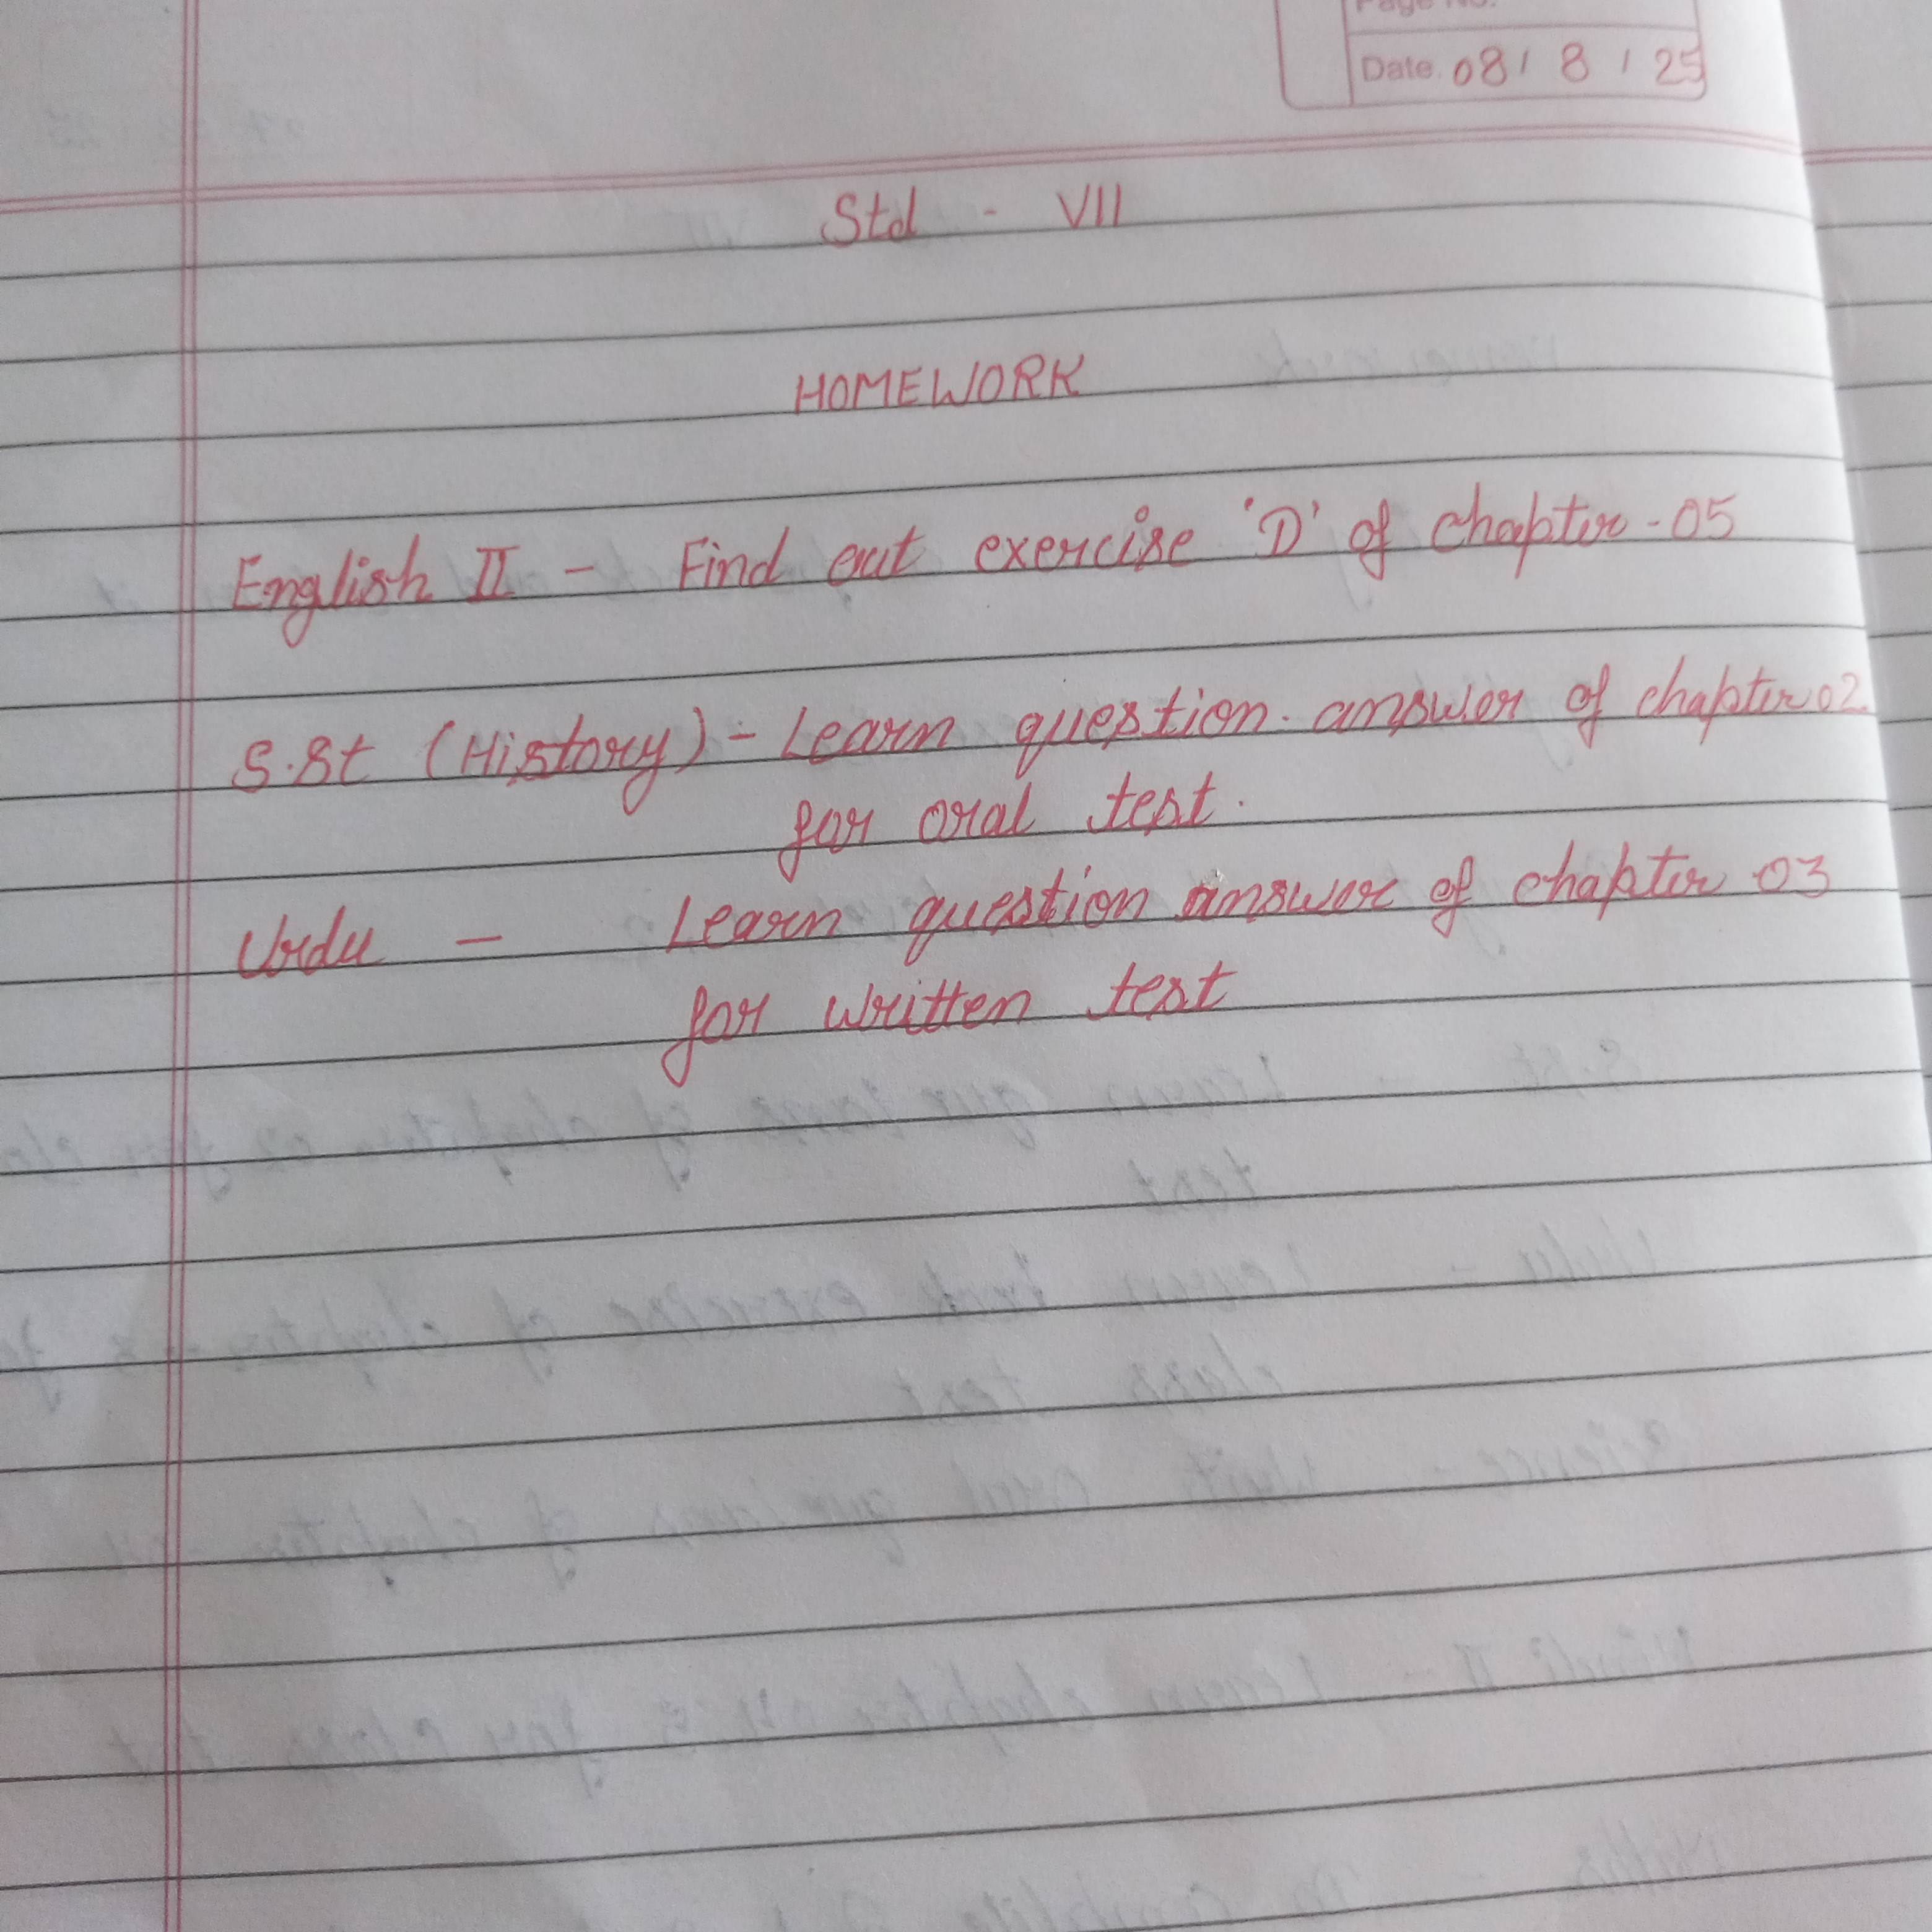 Page No.
Date. 08 / 8 / 25
Std - VII
HOMEWORK
English II - Find out exercise 'D' of chapter - 05
S.St (History) - Learn question. answer of chapter 02
for oral test.
Urdu - Learn question answer of chapter 03
for written test